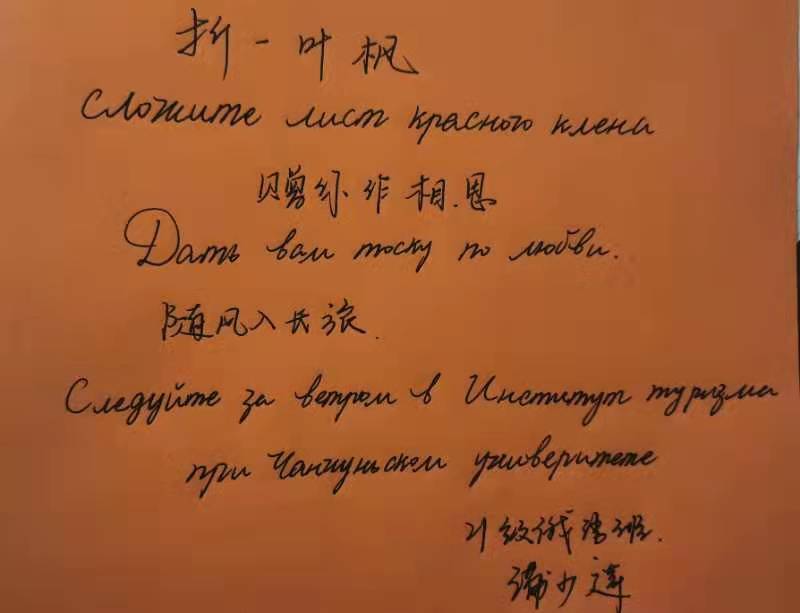 折一叶枫
Сложите лист красного клена
赠你作相思
Дать вам тоску по любви.
随风入长旅.
Следуйте за ветром в Институт туризма
при Чанчуньском универитете
21级俄语班.
少莲